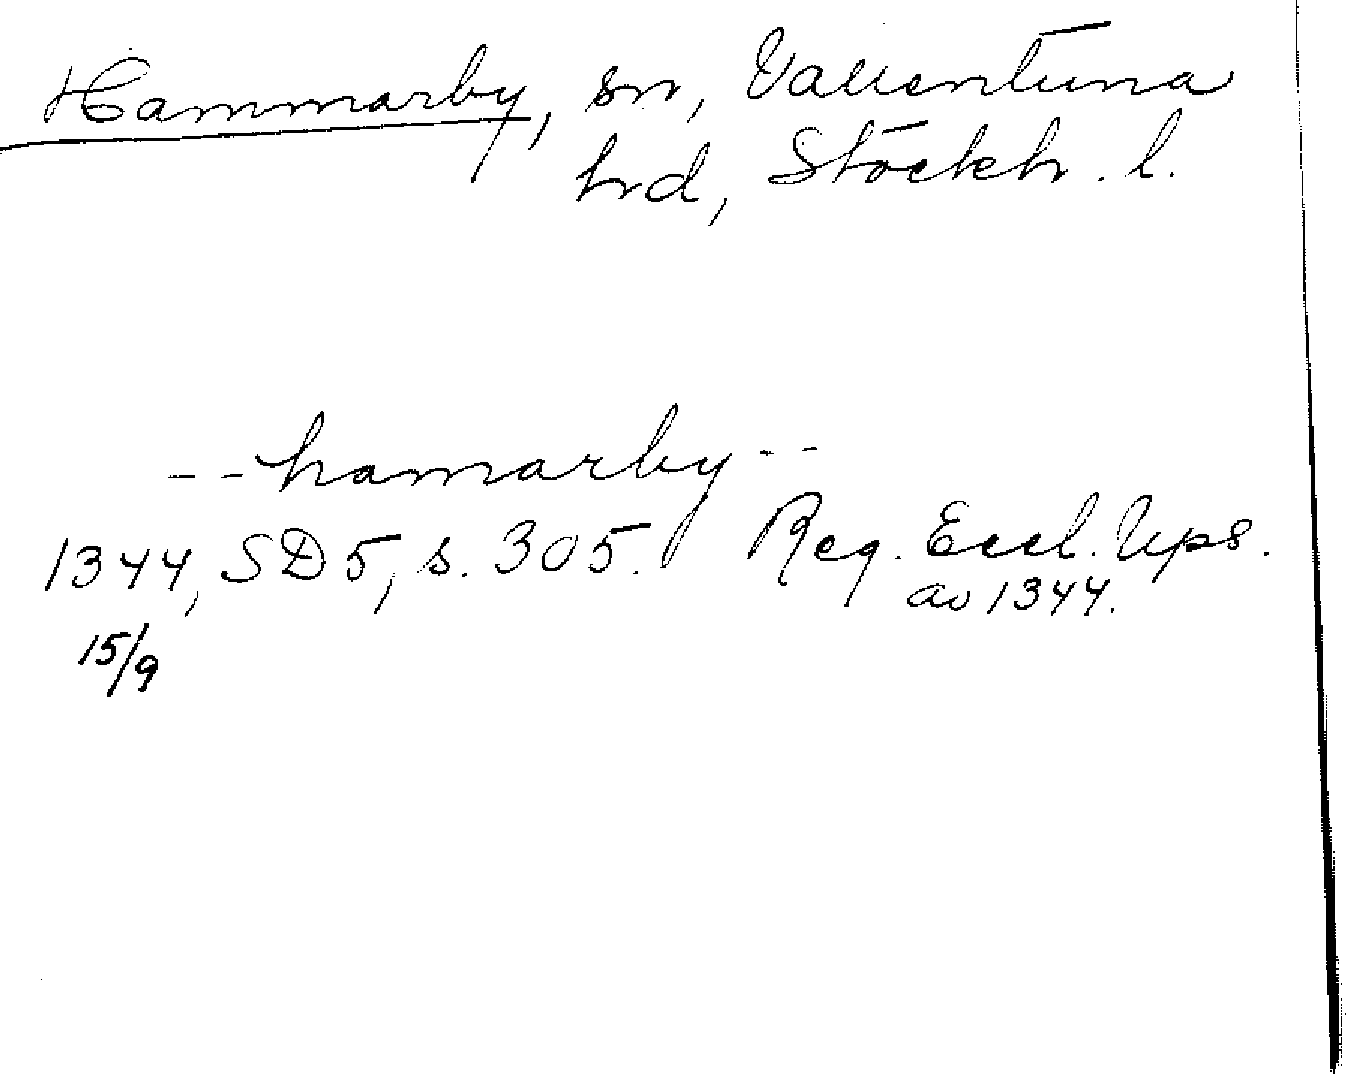 Hammarby, sn, Vallentuna
hrd, Stockh. l.
-- hamarby --
1344, SD 5, s. 305. Reg. Eccl. Ups.
av 1344.
15/9